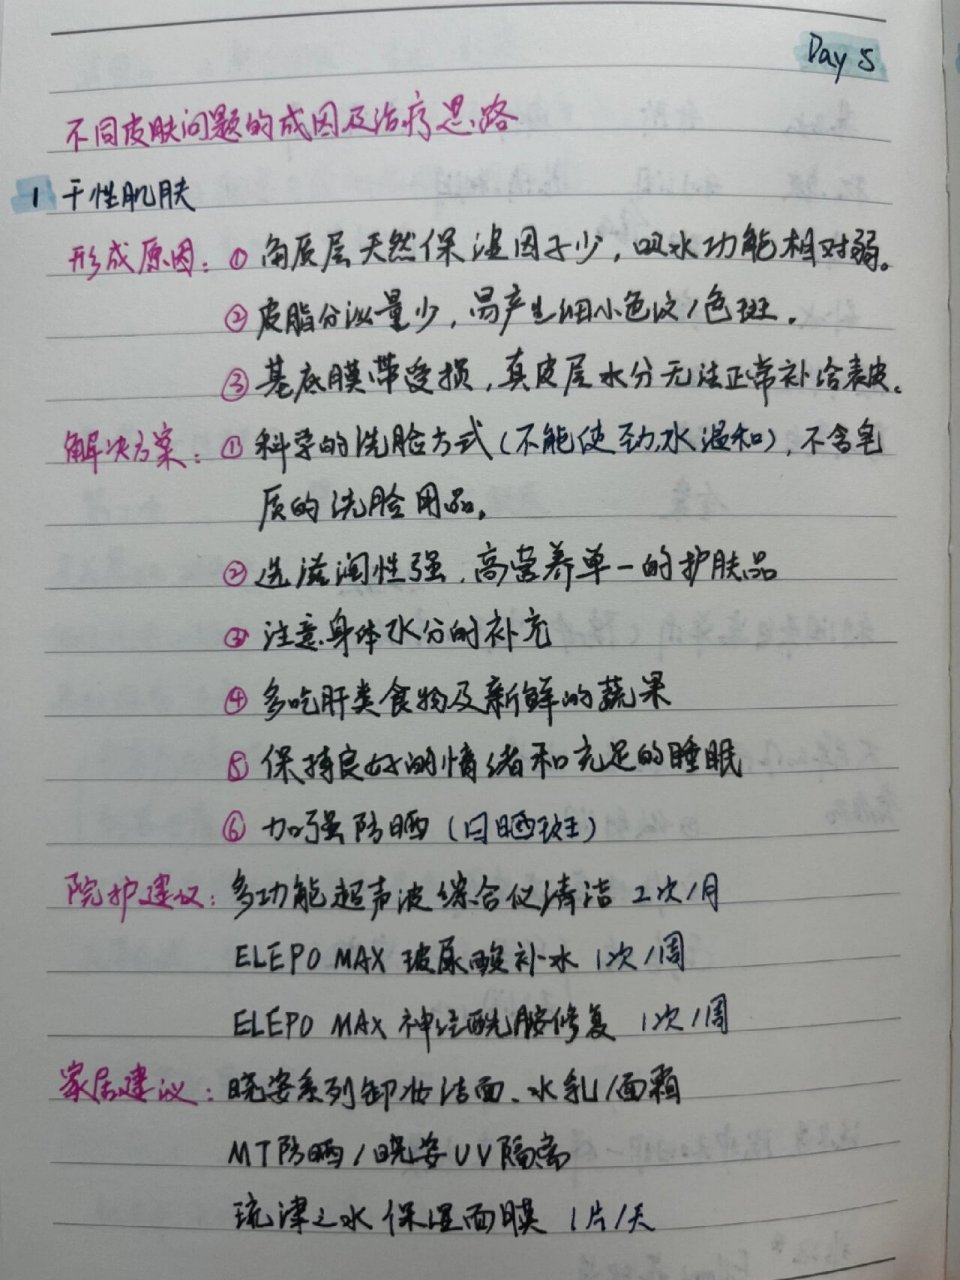 Day 5
不同皮肤问题的成因及治疗思路
1 干性肌肤
形成原因：① 角质层天然保湿因子少，吸水功能相对弱。
② 皮脂分泌量少，易产生细小色纹/色斑．
③ 基底膜带受损，真皮层水分无法正常补给表皮。
解决方案：① 科学的洗脸方式（不能使劲，水温和），不含皂
质的洗脸用品。
② 选滋润性强，高营养单一的护肤品
③ 注意身体水分的补充
④ 多吃肝类食物及新鲜的蔬果
⑤ 保持良好的情绪和充足的睡眠
⑥ 加强防晒（日晒斑）
院护建议：多功能超声波综合仪清洁 2次/月
ELEPO MAX 玻尿酸补水 1次/周
ELEPO MAX 神经酰胺修复 1次/周
家居建议：晓姿系列卸妆洁面、水乳/面霜
MT防晒/晓姿UV隔离
琉津之水 保湿面膜 1片/天